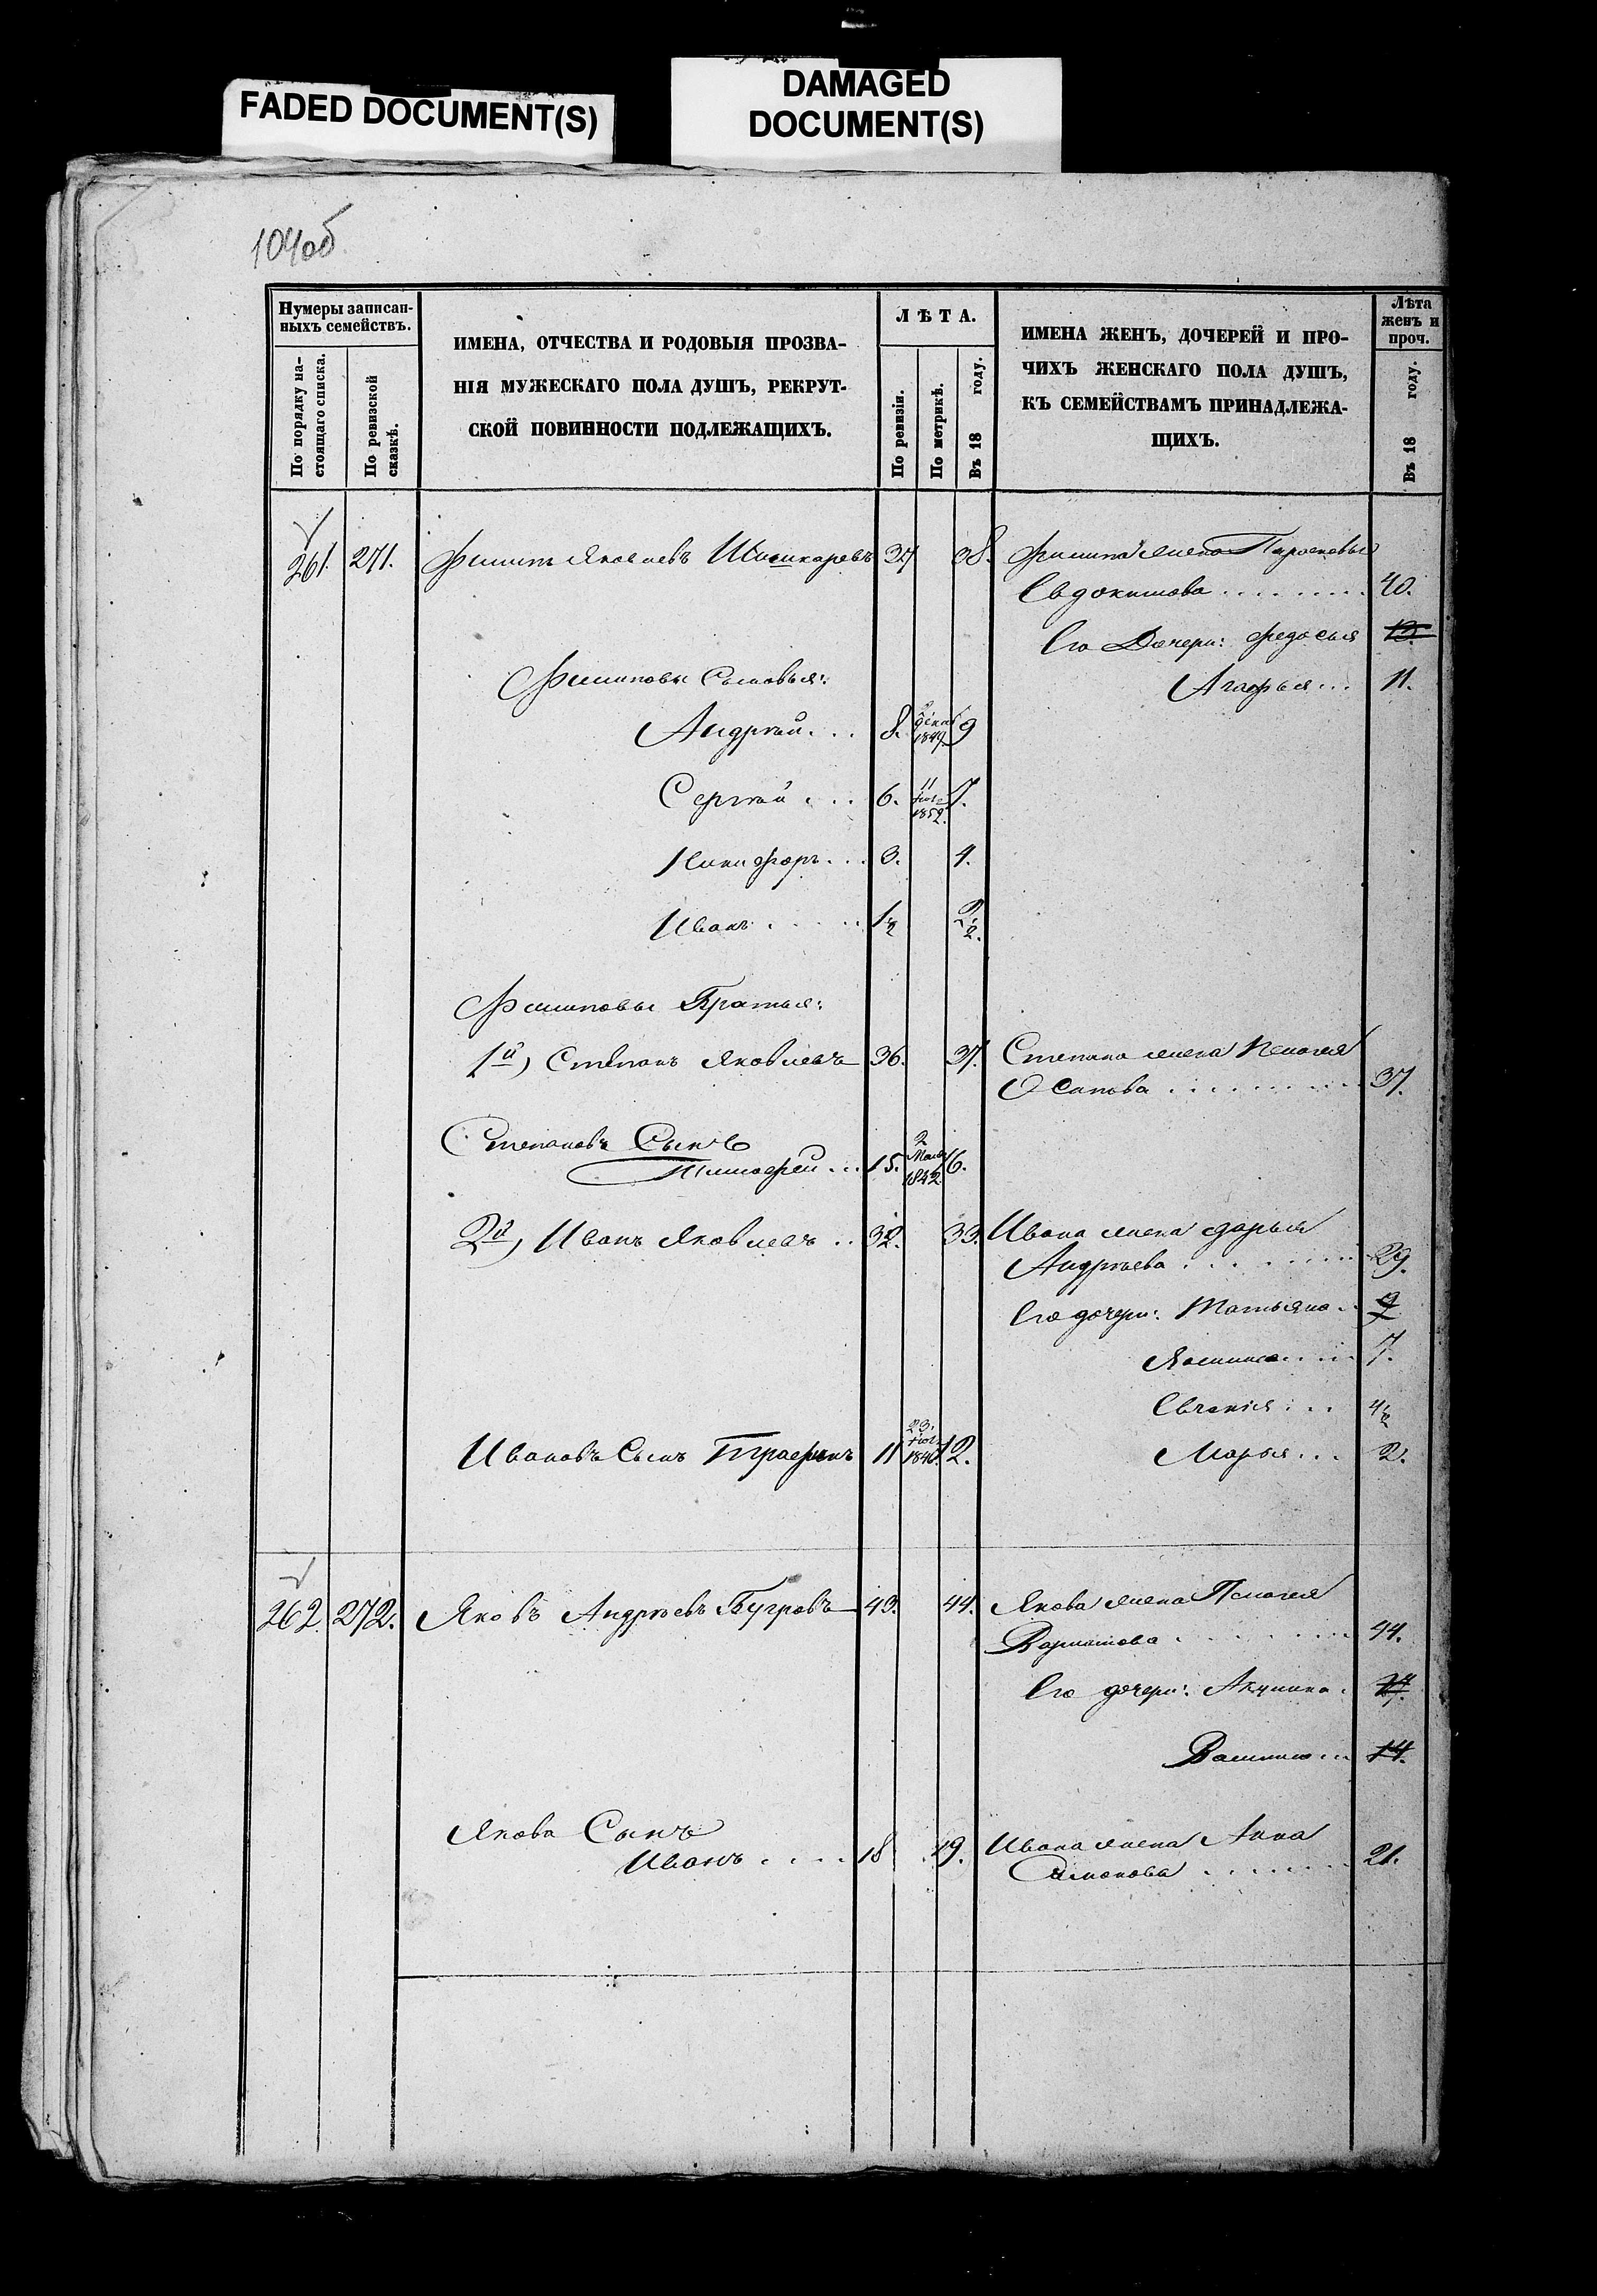 FADED DOCUMENT(S)
DAMAGED
DOCUMENT(S)
104об
Нумеры записан-
ныхъ семействъ.
По порядку на-
стоящаго списка.
По ревизской
сказкѣ.
ИМЕНА, ОТЧЕСТВА И РОДОВЫЯ ПРОЗВА-
НІЯ МУЖЕСКАГО ПОЛА ДУШЪ, РЕКРУТ-
СКОЙ ПОВИННОСТИ ПОДЛЕЖАЩИХЪ.
ЛѢТА.
По ревизіи.
По метрикѣ.
Въ 18 году.
ИМЕНА ЖЕНЪ, ДОЧЕРЕЙ И ПРО-
ЧИХЪ ЖЕНСКАГО ПОЛА ДУШЪ,
КЪ СЕМЕЙСТВАМЪ ПРИНАДЛЕЖА-
ЩИХЪ.
Лѣта
женъ и
проч.
Въ 18 году.
261. 271. Филипъ Яковлевъ 37 38. Филипа жена Парасковья
Евдокимова 40.
Его Дочери: Федосья 13.
Филиповы Сыновья: Агафья... 11.
Андрей... 8. декаб 1849. 9
Сергѣй... 6. 11 1852. 7.
Никифоръ... 3. 4.
Иванъ 1½ 2½.
Филиповы Братья:
1й) Степанъ Яковлевъ 36. 37. Степана жена Пелагея
Осипова 37.
Степановъ Сынъ
Тимофей... 15. 2 1842 16.
2й) Иванъ Яковлевъ.. 32. 33. Ивана жена Дарья
Андреева 29.
Его дочери: Татьяна.. 9
7.
Евгенія... 4½
Ивановъ Сынъ Трафимъ 11 23. 1846. 12. Марья... 2.
262. 272. Яковъ Андреевъ Бугровъ 43. 44. Якова жена Пелагея
44.
Его дочери: Акулина.
14.
Якова Сынъ
Иванъ.... 18 19. Ивана жена Анна
Симонова 21.